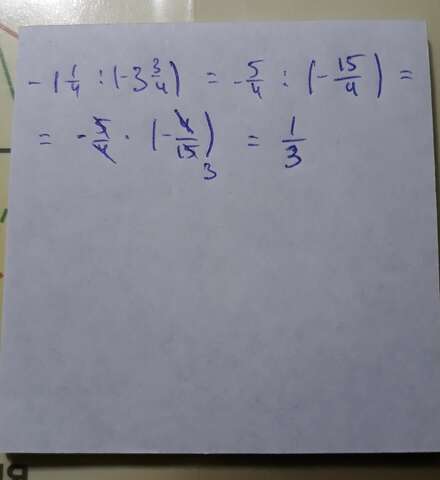 -1 1/4 : (-3 3/4) = -5/4 : (-15/4) =
= -5/4 · (-4/15) 3 = 1/3